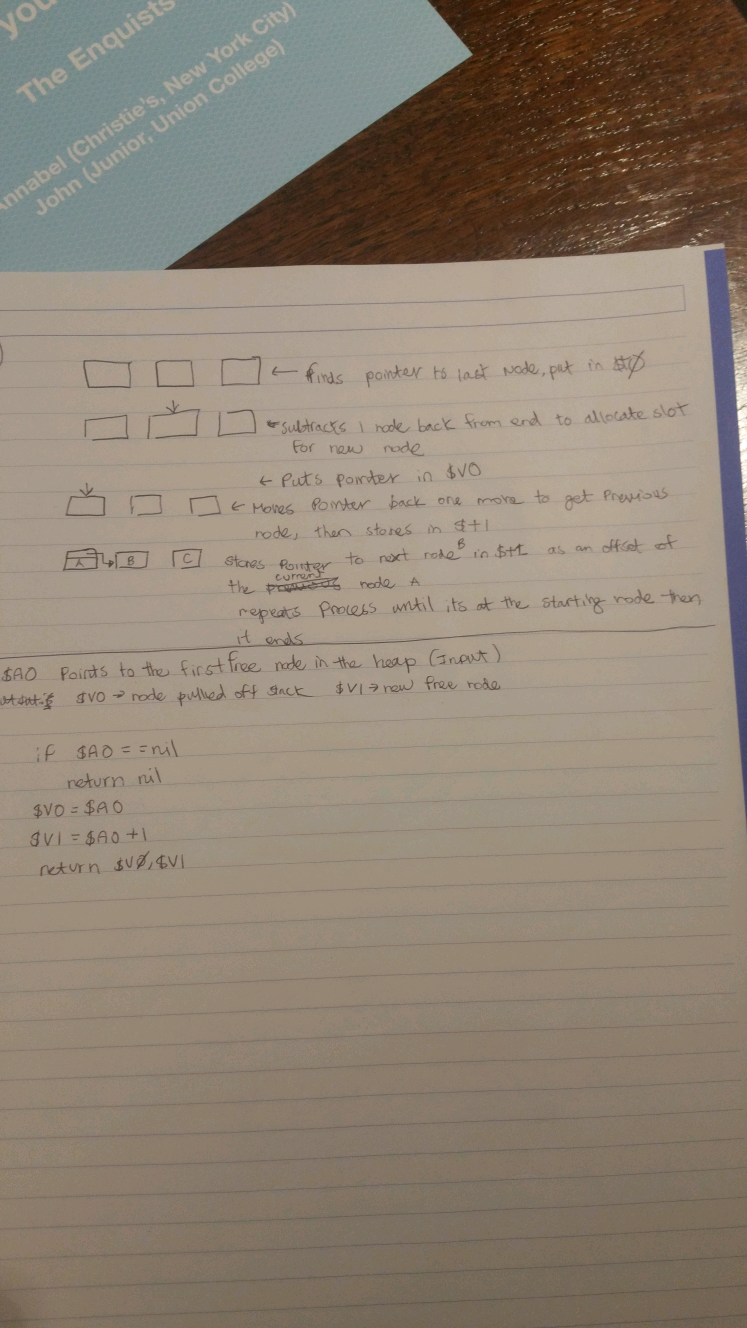 you
The Enquists
Annabel (Christie's, New York City)
John (Junior, Union College)
← finds pointer to last node, put in $t0
←subtracts 1 node back from end to allocate slot
for new node
← Puts pointer in $V0
← Moves Pointer back one more to get Previous
node, then stores in $t1
A B C stores Pointer to next node B in $t1 as an offset of
the current previous node A
repeats Process until its at the starting node then
it ends
$A0 Points to the first free node in the heap (Input)
$V0 → node pulled off stack $V1 → new free node
if $A0 == nil
return nil
$V0 = $A0
$V1 = $A0 +1
return $V0, $V1